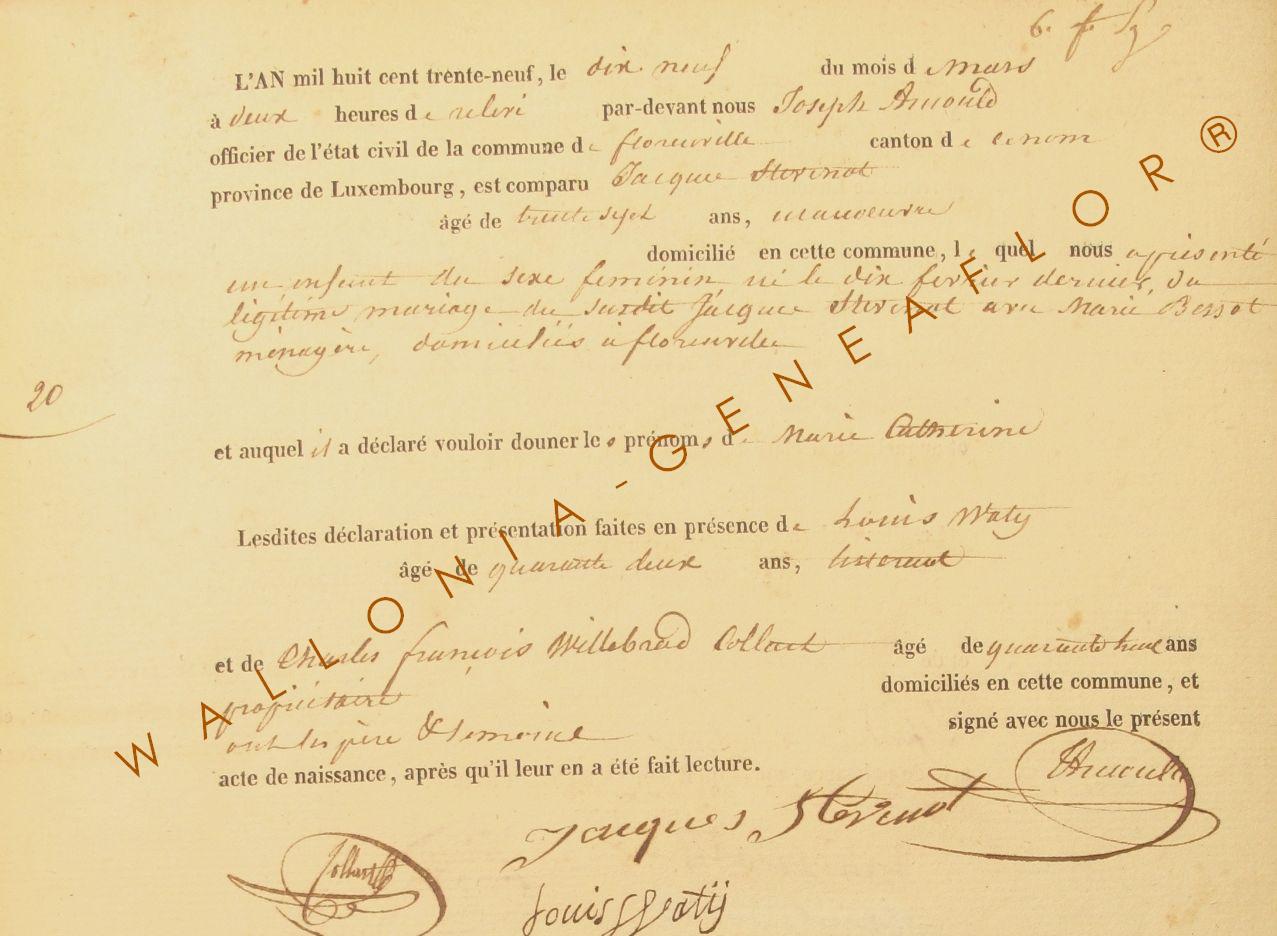 6. f.
L'AN mil huit cent trente-neuf, le dix neuf du mois de Mars
à deux heures de relevé par-devant nous Joseph Arnould
officier de l'état civil de la commune de florenville canton de ce nom
province de Luxembourg, est comparu Jacque Stevenot
âgé de trente sept ans, manoeuvre
domicilié en cette commune, lequel nous a présenté
un enfant du sexe feminin né le dix fevrier dernier, du
légitime mariage du susdit Jacque Stevenot avec Marie Bessot
ménagère, domiciliés à florenville
20
et auquel il a déclaré vouloir donner les prénoms de Marie Catherine
Lesdites déclaration et présentation faites en présence de Louis Waty
âgé de quarante deux ans, tisserand
et de Charles françois Willebrod Collart âgé de quarante huit ans
propriétaire domiciliés en cette commune, et
ont les père & temoins signé avec nous le présent
acte de naissance, après qu'il leur en a été fait lecture.
Arnould
Jacques Stevenot
Collart
Louis Watij
WALLONIA-GENEAFLOR®